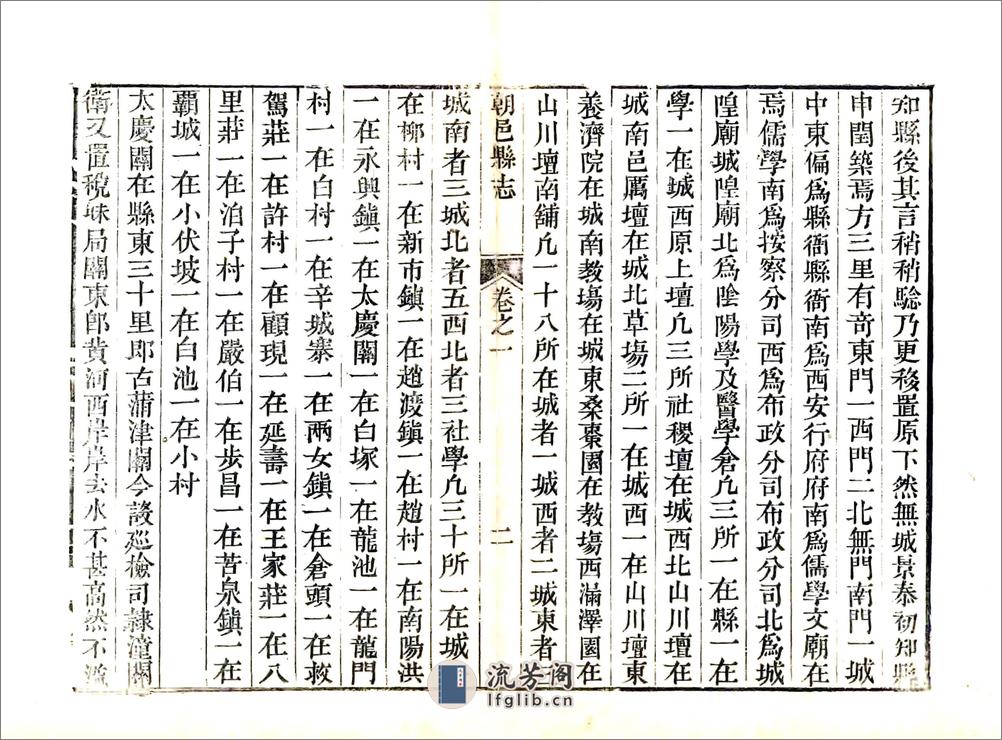 知縣後其言稍稍驗乃更移置原下然無城景泰初知縣
申閏築焉方三里有奇東門一西門二北無門南門一城
中東偏爲縣衙縣衙南爲西安行府府南爲儒學文廟在
焉儒學南爲按察分司西爲布政分司布政分司北爲城
隍廟城隍廟北爲陰陽學及醫學倉凢三所一在縣一在
學一在城西原上壇凢三所社稷壇在城西北山川壇在
城南邑厲壇在城北草塲二所一在城西一在山川壇東
養濟院在城南教塲在城東桑棗園在教塲西漏澤園在
山川壇南舖凢一十八所在城者一城西者二城東者一
城南者三城北者五西北者三社學凢三十所一在城一
在柳村一在新市鎮一在趙渡鎮一在趙村一在南陽洪
一在永興鎮一在太慶關一在白塚一在龍池一在龍門
村一在白村一在辛城寨一在兩女鎮一在倉頭一在救
駕莊一在許村一在顧現一在延壽一在王家莊一在八
里莊一在泊子村一在嚴伯一在步昌一在苦泉鎮一在
覇城一在小伏坡一在白池一在小村
太慶關在縣東三十里即古蒲津關今設廵檢司隸潼關
衛又置稅課局關東即黄河西岸岸去水不甚高然不
朝邑縣志
卷之一
二
流芳阁
lfglib.cn